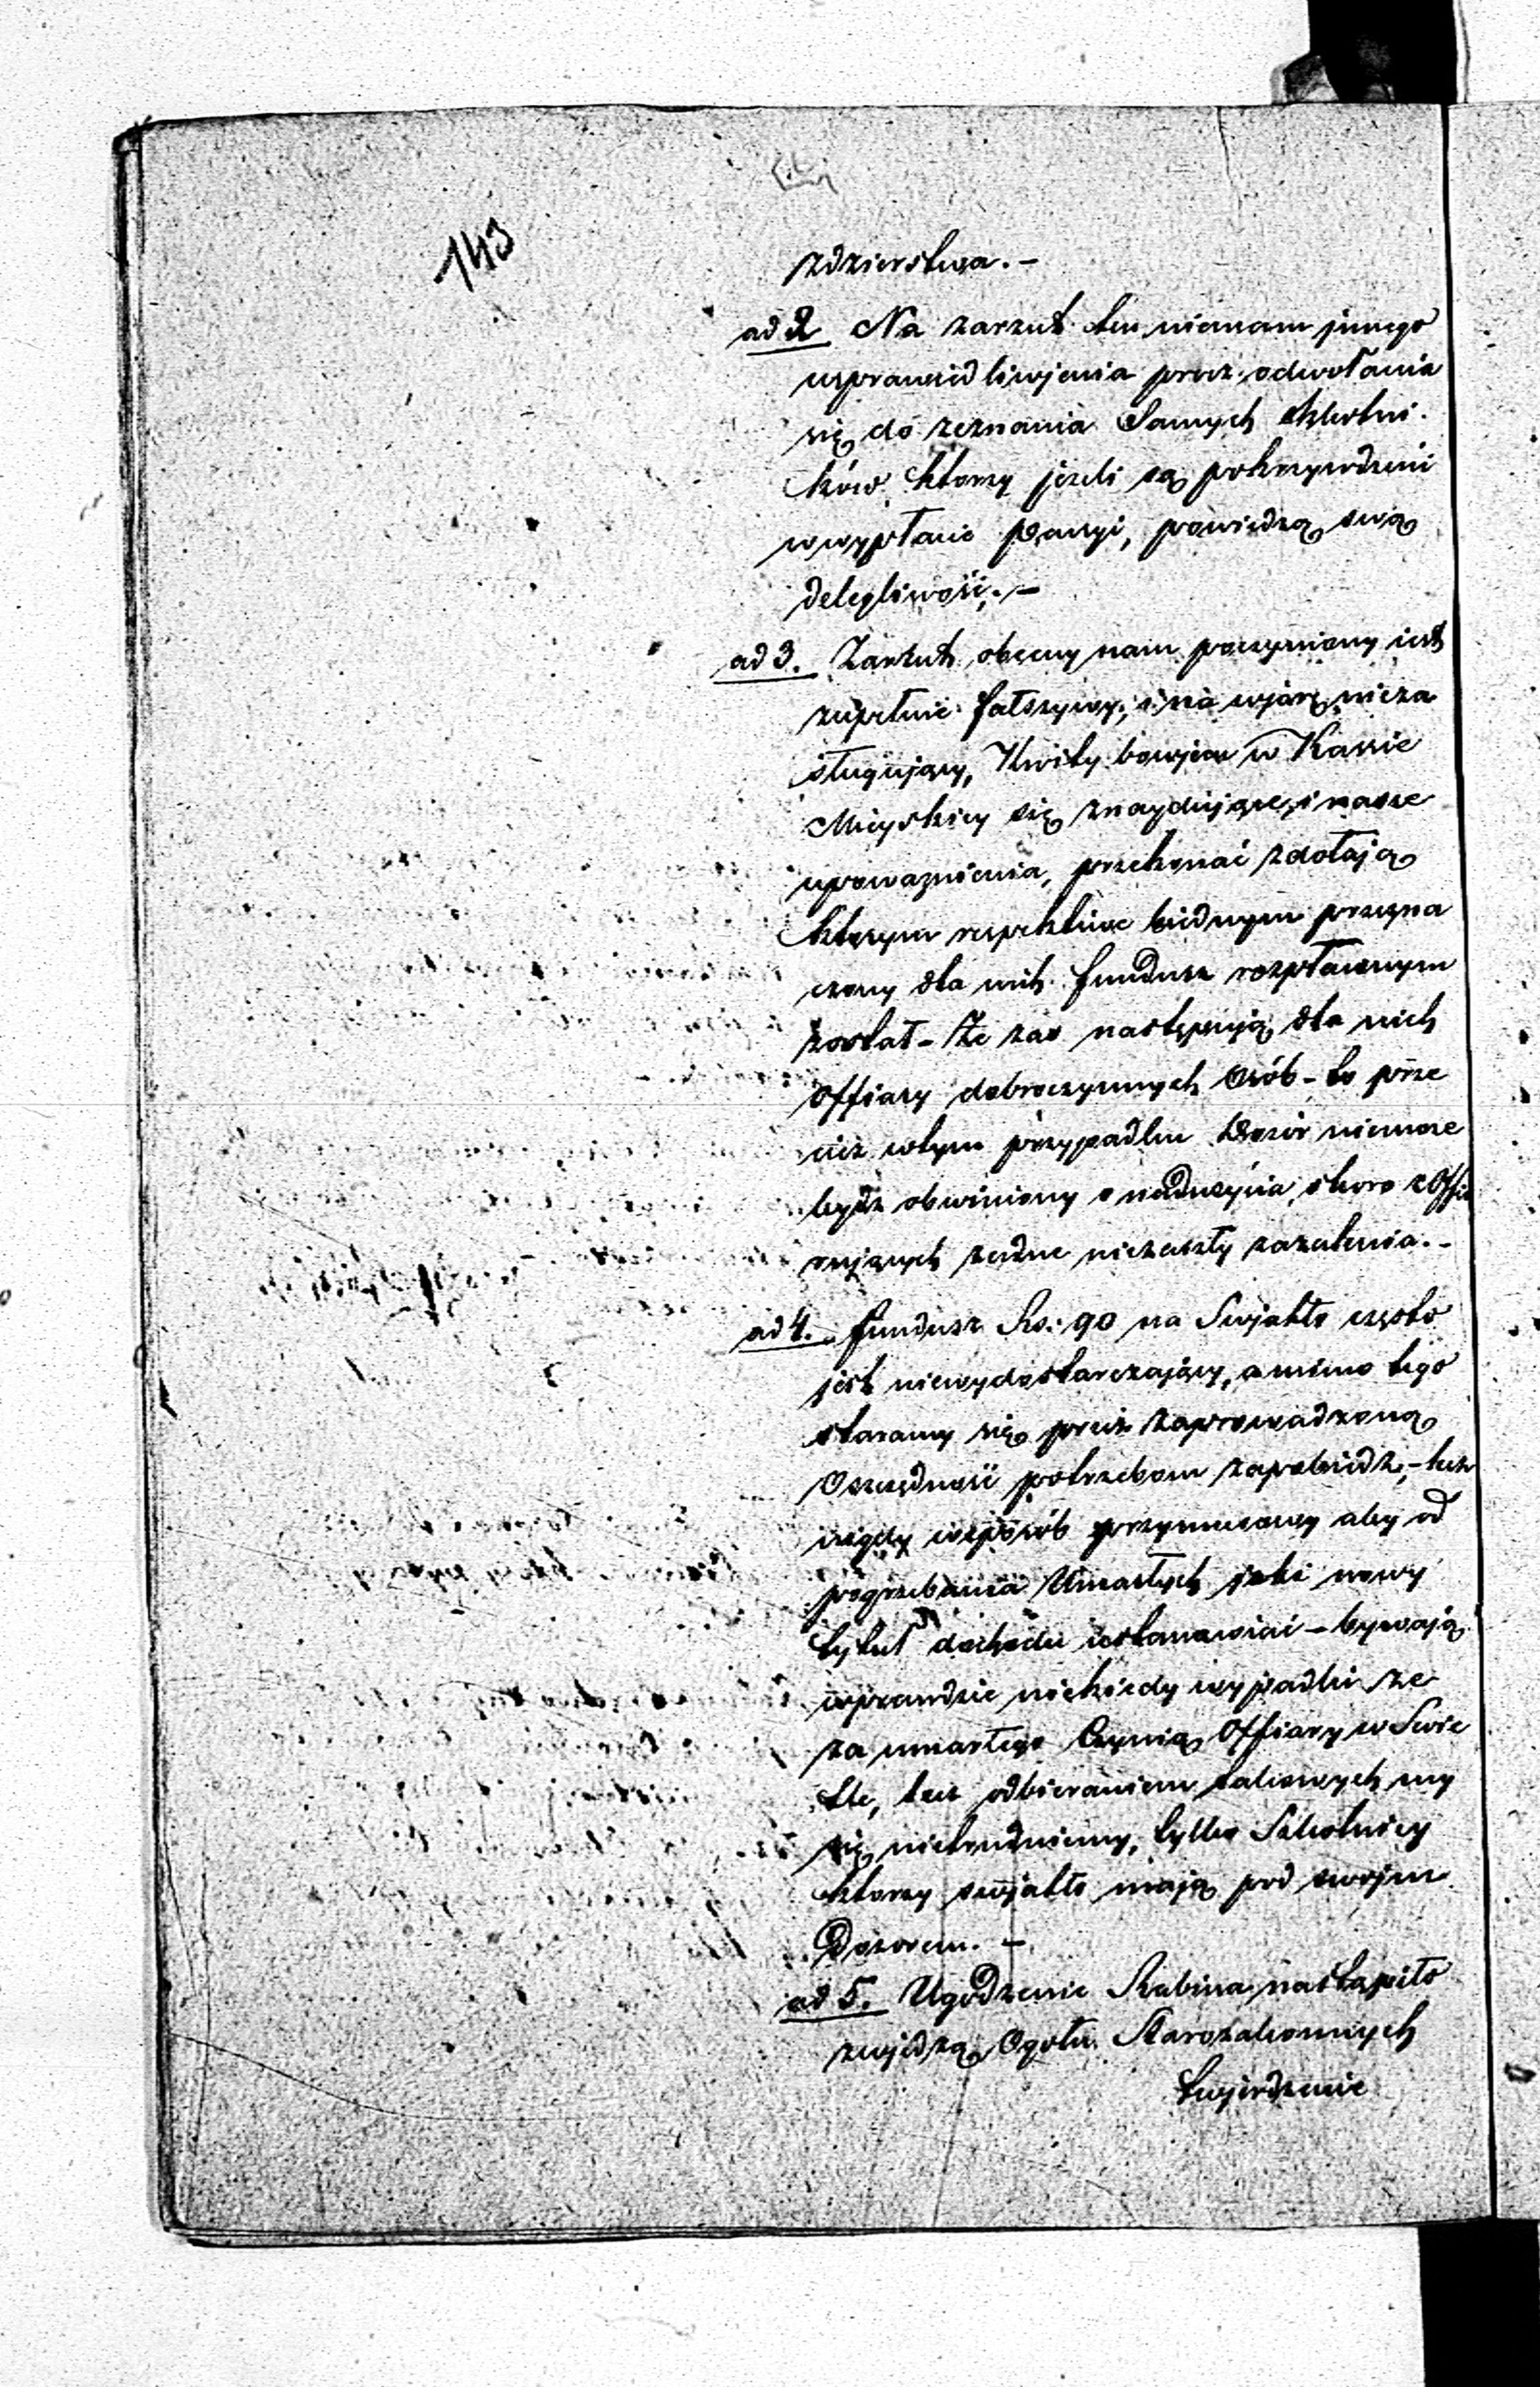 143
zdzierstwa. -
ad 2 Na zarzut ten niemam jnnego
usprawiedliwjenia procz odwołania
się do zeznania Samych Szkolni-
ków ktorzy jeżeli są pokrzywdzeni
w wypłacie pensyi, powiedzą swą
dolegliwość. -
ad 3. Zarzut obecny nam poczyniony jest
zupełnie fałszywy, i na wjarę nieza
sługujący, Kwity bowjem w Kassie
Mieyskiey się znaydujące, i nasze
upoważnienia, przekonać zdołają
ktorym respektive biednym przezna
czony dla nich fundusz rozpłaconym
został - Że zas następują dla nich
Offiary dobroczynnych Osób - to prze
cież wtym przypadku Dozór niemoze
bydz obwiniony o nadużycia, skoro z Offia
rujących żadne niezaszły zażalenia. -
ad 4. fundusz Rs: 90 na Swjatło często
jest niewydostarczający, a mimo tego
staramy się przez zaprowadzoną
Oszczędność potrzebom zapobiedz, - lecz
nigdy wsposób przymusowy aby od
pogrzebania Umarłych jaki nowy
tytuł dochodu ustanawiać - bywają
wprawdzie niekiedy wypadki ze
za umarłego Czynią Offiary w Swie
tle, lecz odbieraniem takowych my
się nietrudniemy, tylko Szkolnicy
ktorzy swjatło mają pod swojem
Dozorem. -
ad 5. Ugodzenie Rabina nastąpiło
zwjedzą Ogołu Starozakonnych
twjerdzenie